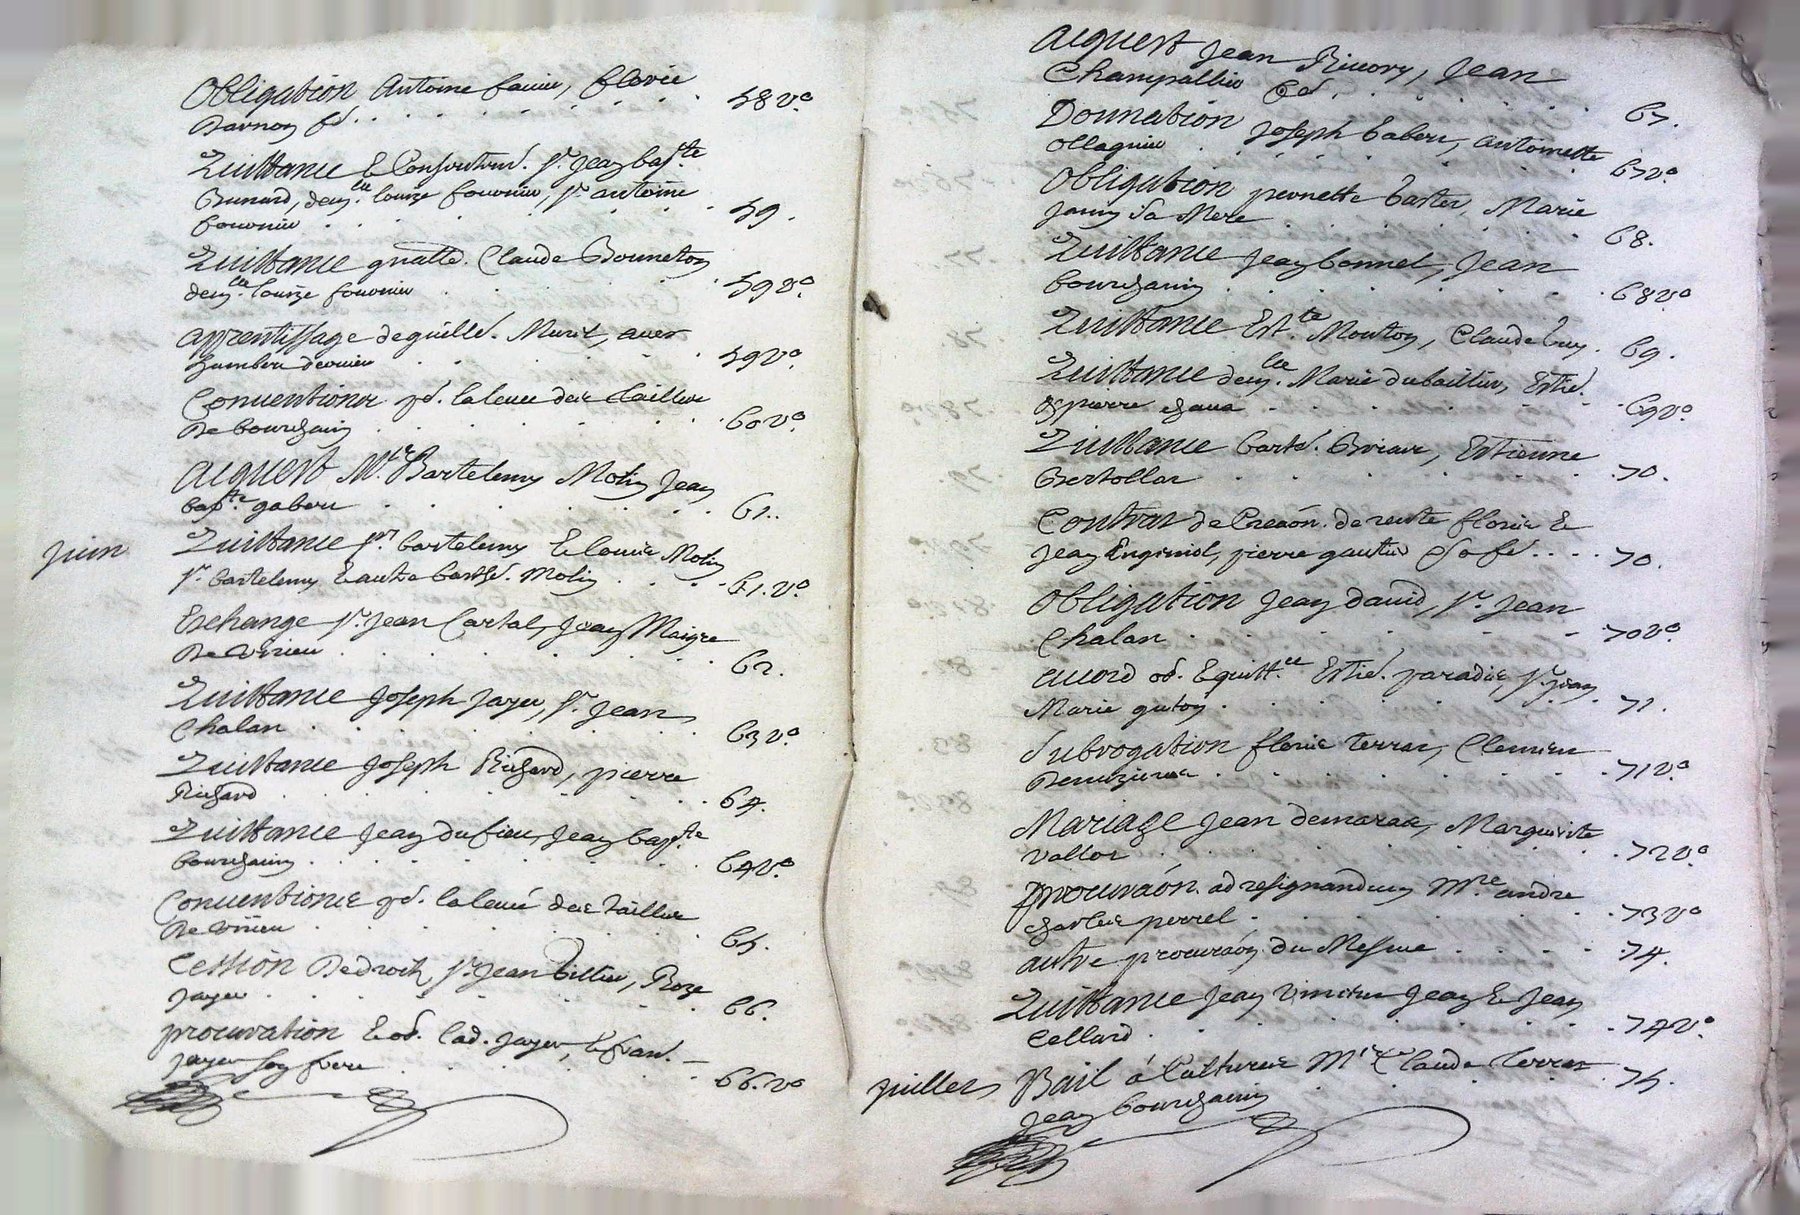 Obligation, Antoine faure, florie
Darnon fd. . . . . . . 58 v.º
Quittance & Consentem.t S.r Jean bap.te
Bunard, dem.lle louize fournier, S.r antoine
fournier . . . . . . . 59.
Quittance gnalle. Claude Bonneton
dem.lle louize fournier . . . . 59 v.º
apprentissage de guille. Muril, avec
humbert dernier . . . . 59 v.º
Conventions pd. la levee des tailles
De bourchany . . . . . 60 v.º
acquest M.re Bartelemy Molin Jean
bap.te gaberi . . . . . 61..
juin
Quittance S.r bartelemy & louis Molin
S.r bartelemy & autre barthe. Molin . . . . 61. v.º
Eschange S.r Jean Cartal, Jean Maigre
De virieu . . . . . . 62.
Quittance Joseph Jayer, S.r Jean
Chalan . . . . . . 63 v.º
Quittance Joseph Richard, pierre
Richard . . . . . . 64.
Quittance Jean dufieu, Jean bap.te
bourchany . . . . . . 64 v.º
Conventions pd. la levée des tailles
De virieu . . . . . . 65.
Cession De droits, S.r Jean tillier, Roze
Jayer . . . . . . 66.
procuration & od. lad. Jayer, & fran.
Jayer son frere . . . . . 66. v.º
acquest Jean Rivory, Jean
Champallier Cd. . . . . . 67.
Donnation Joseph taberi, antoinette
ollagnier . . . . . . 67 v.º
Obligation pernette baster, Marie
Janin sa Mere . . . . . 68.
Quittance Jean bonnel, Jean
bourchany . . . . . . 68 v.º
Quittance Est.te Mouton, Claude Cruy . 69.
Quittance dem.lle Marie dubaillier, Estie.
& pierre chava . . . . . 69 v.º
Quittance barthe. Briaur, Estienne
Bertollar . . . . . . 70.
Contrat de Creaon. de rente florie &
Jean Enginiol, pierre gautier . . . . 70.
Obligation Jean david, S.r Jean
Chalan . . . . . . 70 v.º
accord od. & quitt.ce Estie. paradis, S.r Jean
Marie guton . . . . . . 71.
Subrogation florie terrar, Clemien
Demizieux . . . . . . 71 v.º
Mariage Jean demarar, Marguerite
Vallor . . . . . . 72 v.º
procuraón ad resignandum M.re andre
charles perrel . . . . . 73 v.º
autre procuraón du Mesme . . . . 74.
Quittance Jean vincien Jean & Jean
Cellard . . . . . . 74 v.º
juillet
Bail á Cultures M.re Claude terrar . 75.
Jean bourchany